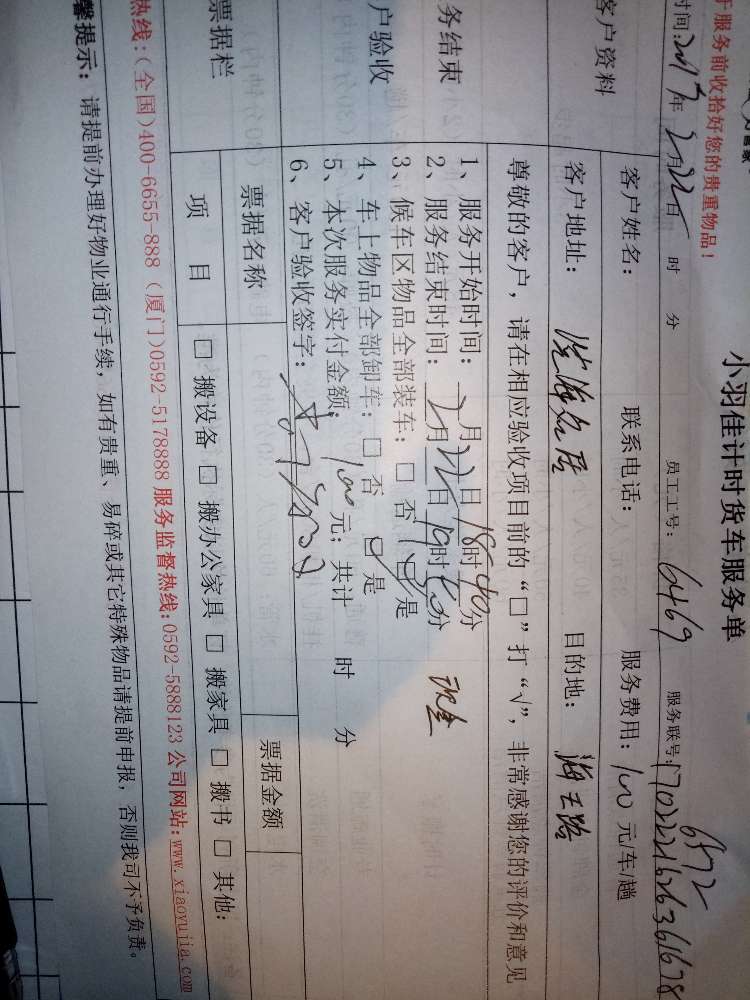 小羽佳计时货车服务单
开服务前收拾好您的贵重物品！
时间:2017年2月22日 时 分 员工工号: 6469 服务联号:170222162636 1678
6572
客户资料 客户姓名: 联系电话: 服务费用: 100 元/车/趟
客户地址: 目的地:
尊敬的客户，请在相应验收项目前的“□”打“√”，非常感谢您的评价和意见
务结束
户验收
1、服务开始时间: 2月22日18时40分
2、服务结束时间: 2月22日19时40分 现金
3、候车区物品全部装车: □ 否 □ 是
4、车上物品全部卸车: □ 否 □ 是
5、本次服务实付金额: 100 元; 共计 时 分
6、客户验收签字:
票据栏 票据名称 票据金额
项 目 □ 搬设备 □ 搬办公家具 □ 搬家具 □ 搬书 □ 其他:
热线:(全国)400-6655-888 (厦门)0592-5178888 服务监督热线:0592-5888123 公司网站:www.xiaoyujia.com
馨提示: 请提前办理好物业通行手续，如有贵重、易碎或其它特殊物品请提前申报，否则我司不予负责。